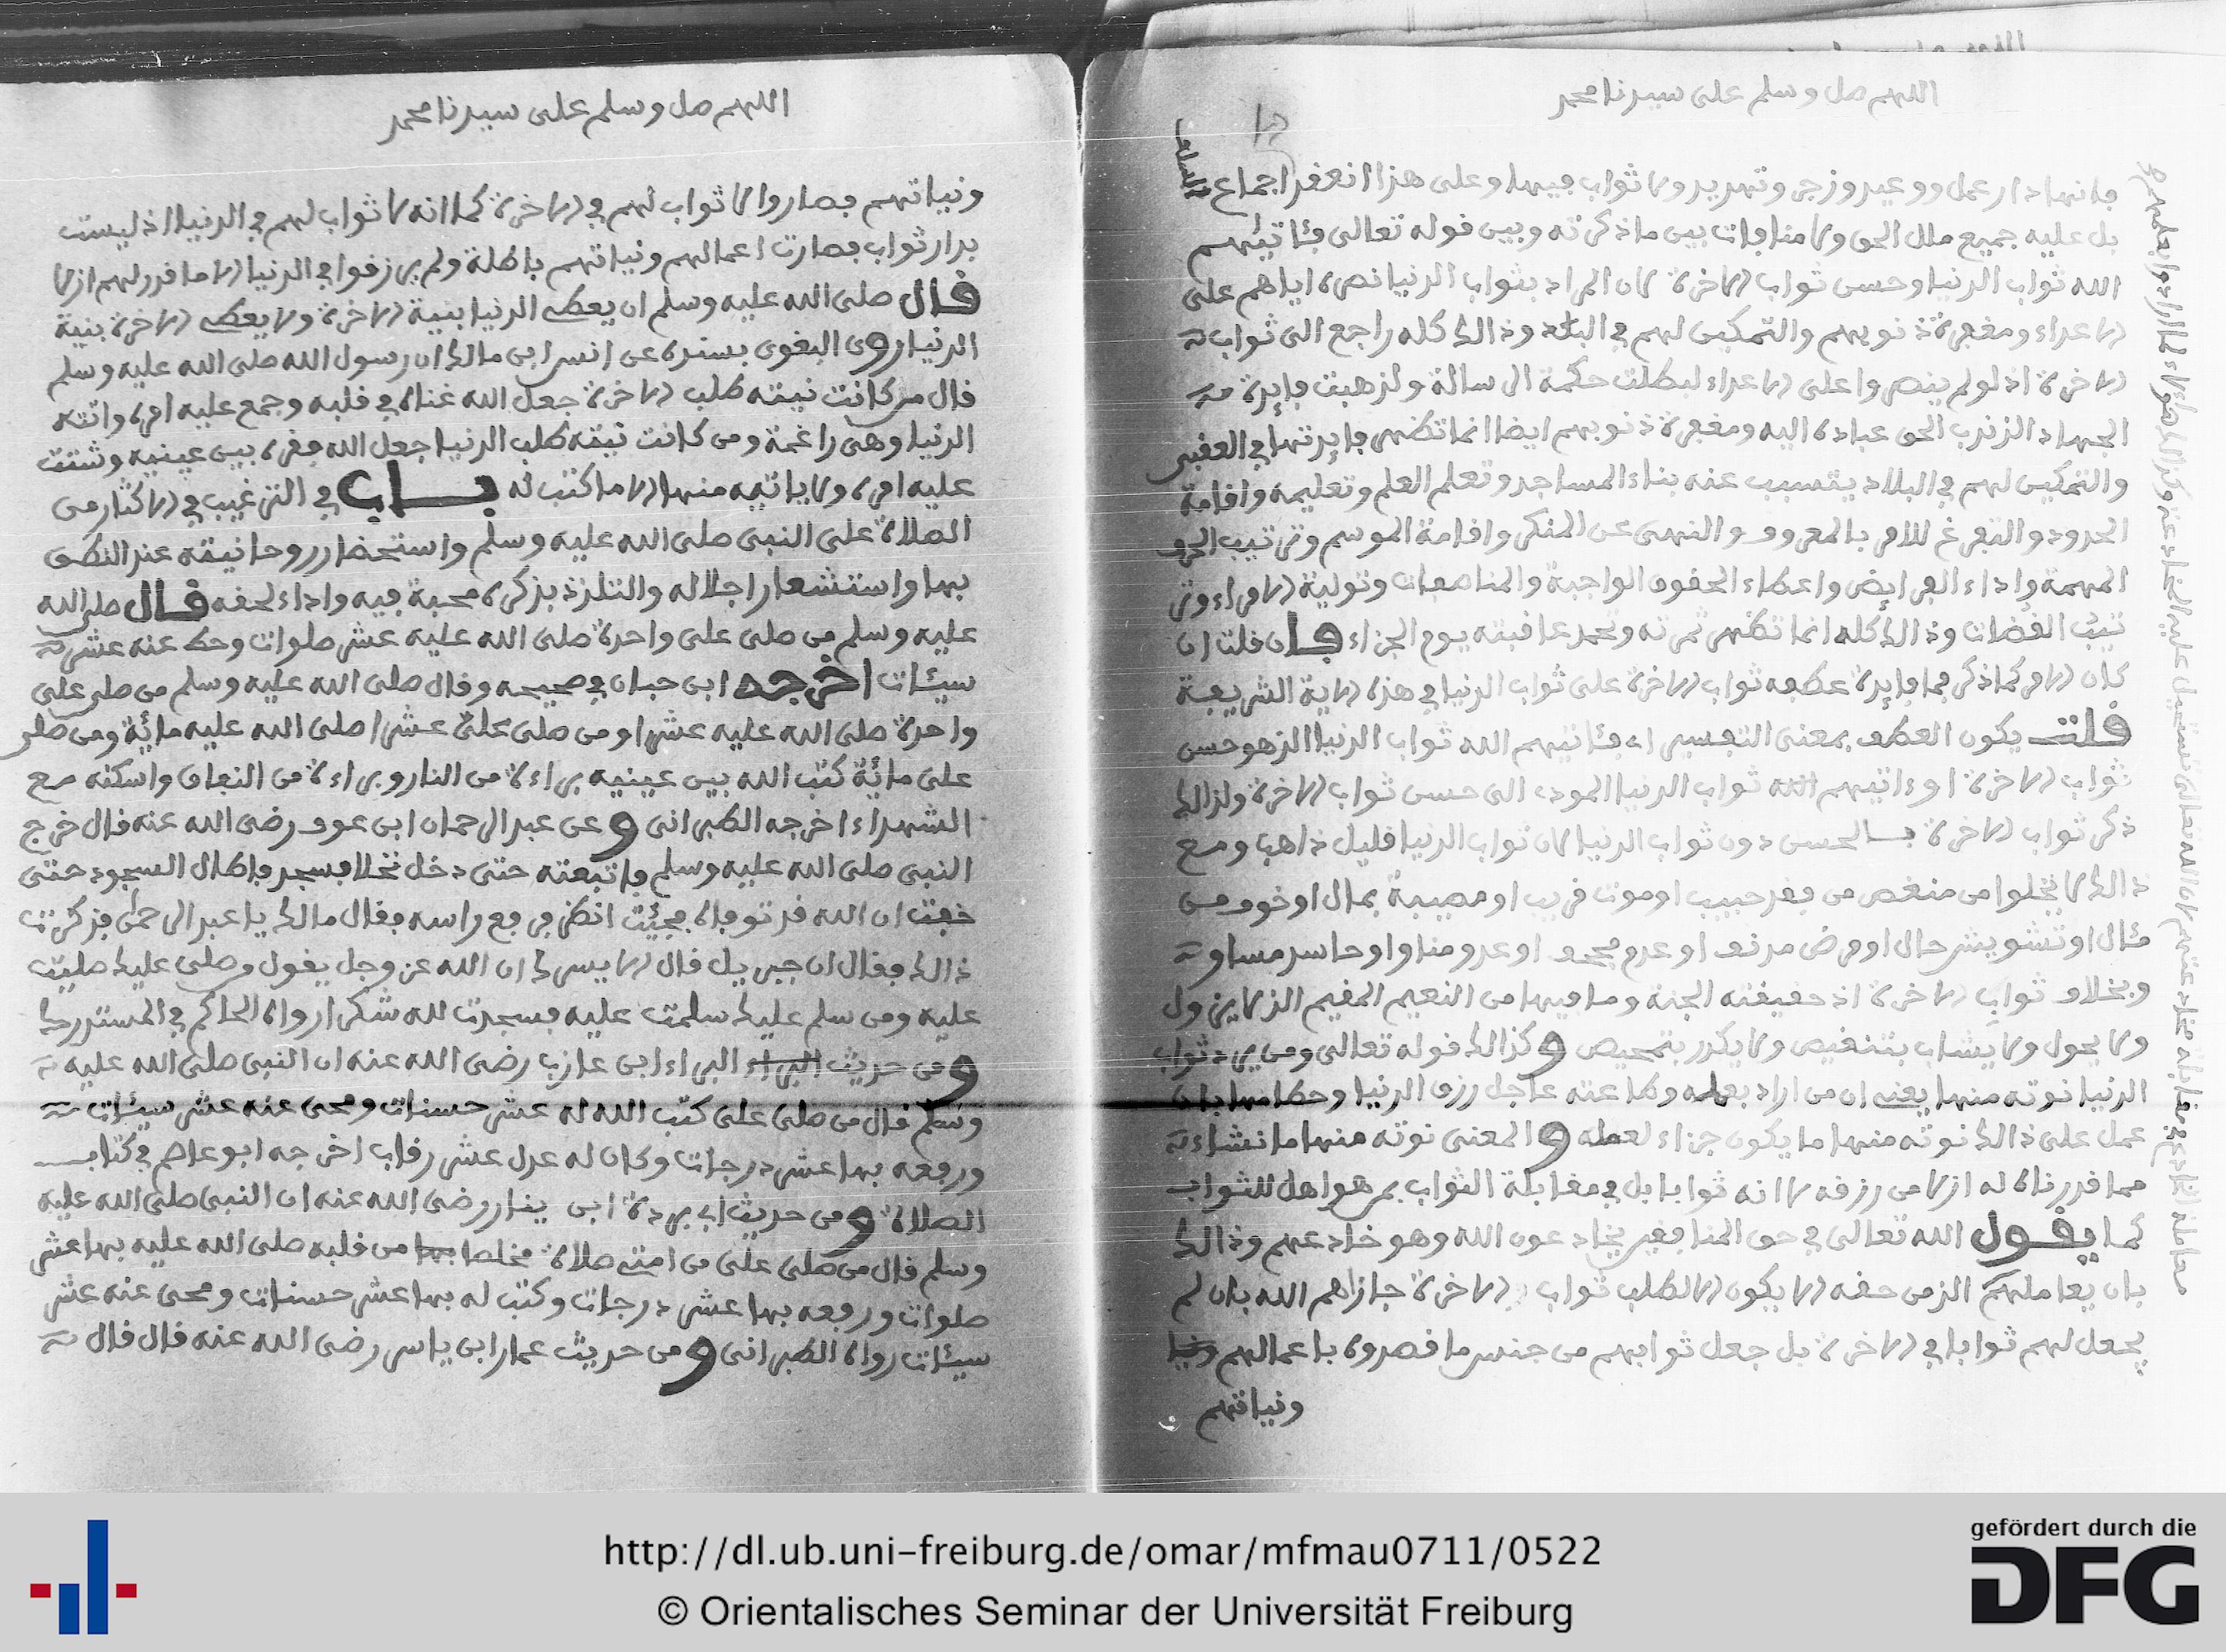 اللهم صل وسلم على سيدنا محمد
فإنها دار عمل ووعيد وزجر وتهديد ولا ثواب فيها وعلى هذا انعقد اجماع
بل عليه جميع ملل الحق ولا منافات بين ما ذكرته وبين قوله تعالى فئاتيهم
الله ثواب الدنيا وحسن ثواب الاخرة لان المراد بثواب الدنيا نصره اياهم على
الاعداء ومغفرة ذنوبهم والتمكين لهم في البلاد وذالك كله راجع الى ثواب
الاخرة اذ لو لم ينصروا على الاعداء لبطلت حكمة الرسالة ولذهبت فايدة
الجهاد الذي رد الحق عباده اليه ومغفرة ذنوبهم ايضا انما تظهر فايدتها في العقبى
والتمكين لهم في البلاد يتسبب عنه بناء المساجد وتعلم العلم وتعليمه واقامة
الحدود والتفرغ للامر بالمعروف والنهي عن المنكر واقامة الموسم وترتيب الحرف
المهمة واداء الفرايض واعطاء الحقوق الواجبة والمناصفات وتولية الامراء وتر
تيب القضات وذالك كله انما تظهر ثمرته وتحمد عافيته يوم الجزاء فإن قلت ان
كان الامر كما ذكر فما فايدة عطف ثواب الاخرة على ثواب الدنيا في هذه الاية الشريفة
قلت يكون العطف بمعنى التفسير اي فئاتيهم الله ثواب الدنيا الذي هو حسن
ثواب الاخرة او ءاتيهم الله ثواب الدنيا المودي الى حسن ثواب الاخرة ولذالك
ذكر ثواب الاخرة بالحسن دون ثواب الدنيا لان ثواب الدنيا قليل ذاهب ومع
ذالك لا يخلوا من منغص من فقد حبيب او موت قريب او مصيبة بمال او خوف من
مئال او تشويش حال او مرض مدنف او عدم مجحف او عدو مناو او حاسد مساو
وبخلاف ثواب الاخرة اذ حقيقته الجنة وما فيها من النعيم المقيم الذي لا يزول
ولا يحول ولا يشاب بتنغيص ولا يكدر بتمحيص وكذالك قوله تعالى ومن يرد ثواب
الدنيا نوته منها يعني ان من اراد بعمله وطاعته عاجل رزق الدنيا وحطامها بان
عمل على ذالك نوته منها ما يكون جزاء لعمله والمعنى نوته منها ما نشاء
مما قدرناه له ازلا من رزقه لا انه ثوابا بل في مقابلة الثواب بمن هو اهل للثواب
كما يقول الله تعالى في حق المنافقين يخادعون الله وهو خادعهم وذالك
بان يعاملهم الذي من حقه الا يكون الا لطلب ثواب الاخرة جازاهم الله بان لم
يجعل لهم ثوابا في الاخرة بل جعل ثوابهم من جنس ما قصدوه باعمالهم
ونياتهم
اللهم صل وسلم على سيدنا محمد
ونياتهم فصاروا لا ثواب لهم في الاخرة كما انه لا ثواب لهم في الدنيا اذ ليست
بدار ثواب فصارت اعمالهم ونياتهم باطلة ولم يرزقوا في الدنيا الا ما قدر لهم ازلا
قال صلى الله عليه وسلم ان يعطي الدنيا بنية الاخرة ولا يعطي الاخرة بنية
الدنيا روى البغوي بسنده عن انس ابن مالك ان رسول الله صلى الله عليه وسلم
قال من كانت نيته طلب الاخرة جعل الله غناه في قلبه وجمع عليه امره واتته
الدنيا وهي راغمة ومن كانت نيته طلب الدنيا جعل الله فقره بين عينيه وشتت
عليه امره ولا ياتيه منها الا ما كتب له باب في الترغيب في الاكثار من
الصلاة على النبي صلى الله عليه وسلم واستحضار روحانيته عند النطق
بها واستشعار اجلاله والتلذذ بذكره محبة فيه واداء لحقه قال صلى الله
عليه وسلم من صلى علي واحدة صلى الله عليه عشر صلوات وحط عنه عشر
سيئات اخرجه ابن حبان في صحيحه وقال صلى الله عليه وسلم من صلى علي
واحدة صلى الله عليه عشرا ومن صلى علي عشرا صلى الله عليه مائة ومن صلى
علي مائة كتب الله بين عينيه براءة من النار وبراءة من النفاق واسكنه مع
الشهداء اخرجه الطبراني وعن عبد الرحمان ابن عوف رضي الله عنه قال خرج
النبي صلى الله عليه وسلم فاتبعته حتى دخل نخلا فسجد فاطال السجود حتى
خفت ان الله قد توفاه فجئت انظر فرفع راسه فقال مالك يا عبد الرحمن فذكرت
ذالك فقال ان جبريل قال الا يسرك ان الله عز وجل يقول من صلى عليك صليت
عليه ومن سلم عليك سلمت عليه فسجدت لله شكرا رواه الحاكم في المستدرك
ومن حديث البراء البراء ابن عازب رضي الله عنه ان النبي صلى الله عليه
وسلم قال من صلى علي كتب الله له عشر حسنات ومحى عنه عشر سيئات
ورفعه بها عشر درجات وكان له عدل عشر رقاب اخرجه ابو عاصم في كتاب
الصلاة ومن حديث ابي بردة ابن ينار رضي الله عنه ان النبي صلى الله عليه
وسلم قال من صلى علي من امتي صلاة مخلصا بها من قلبه صلى الله عليه بها عشر
صلوات ورفعه بها عشر درجات وكتب له بها عشر حسنات ومحى عنه عشر
سيئات رواه الطبراني ومن حديث عمار ابن ياسر رضي الله عنه قال قال
http://dl.ub.uni-freiburg.de/omar/mfmau0711/0522
© Orientalisches Seminar der Universität Freiburg
gefördert durch die
DFG